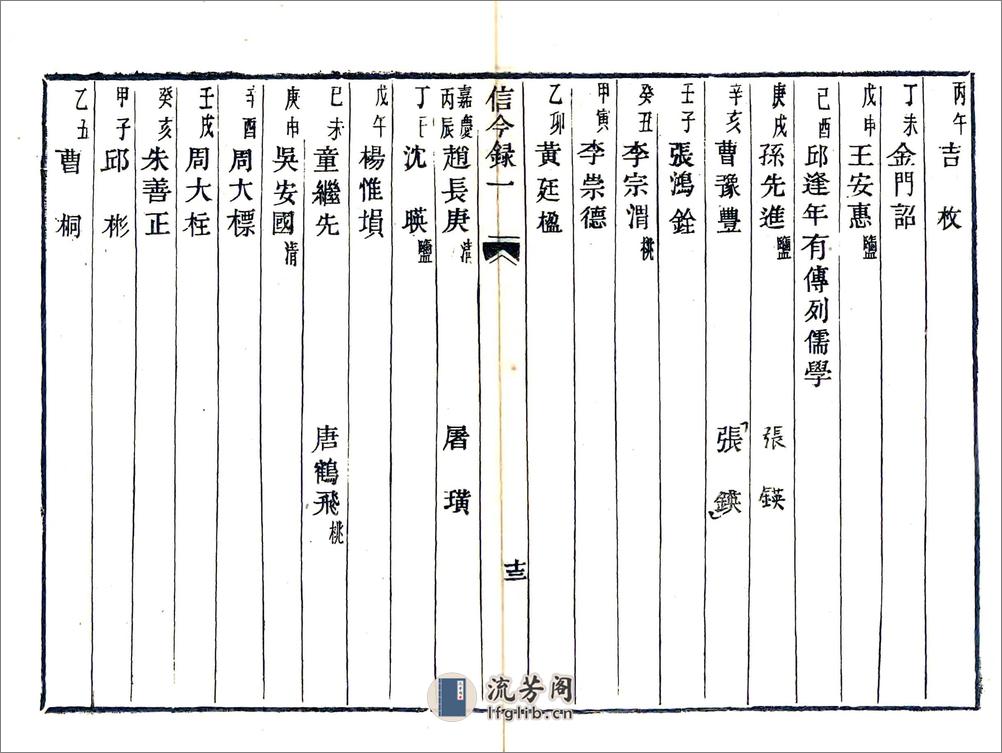 丙午 吉枚
丁未 金門詔
戊申 王安惠 鹽
己酉 邱逢年 有傳列儒學
庚戌 孫先進 鹽 張鍈
辛亥 曹豫豐 張鍈
壬子 張鴻銓
癸丑 李宗渭 桃
甲寅 李崇德
乙卯 黃廷楹
信今録一 十三
嘉慶丙辰 趙長庚 清 屠璜
丁巳 沈暎 鹽
戊午 楊惟塤
己未 童繼先 唐鶴飛 桃
庚申 吳安國 清
辛酉 周大標
壬戌 周大柱
癸亥 朱善正
甲子 邱彬
乙丑 曹桐
流芳阁
lfglib.cn